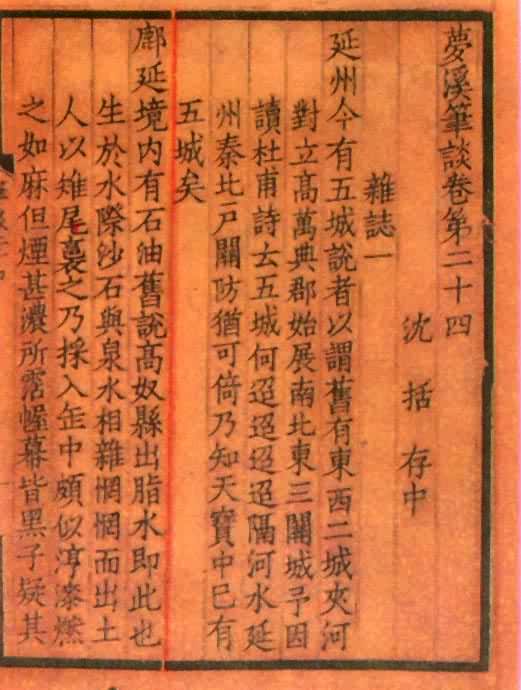 夢溪筆談卷第二十四
沈括存中
雜誌一
延州今有五城說者以謂舊有東西二城夾河
對立高萬典郡始展南北東三關城予因
讀杜甫詩云五城何迢迢迢迢隔河水延
州秦北戶關防猶可倚乃知天寶中已有
五城矣
鄜延境内有石油舊說高奴縣出脂水即此也
生於水際沙石與泉水相雜惘惘而出土
人以雉尾裛之乃採入缶中頗似淳漆燃
之如麻但煙甚濃所霑幄幕皆黑予疑其